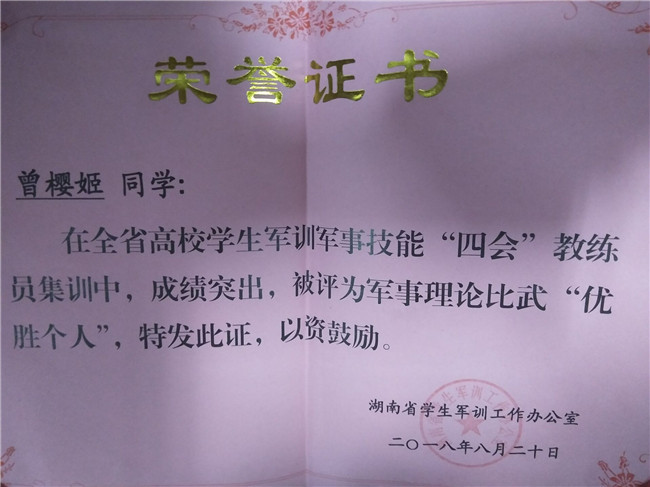 荣誉证书
曾樱姬 同学：
在全省高校学生军训军事技能“四会”教练
员集训中，成绩突出，被评为军事理论比武“优
胜个人”，特发此证，以资鼓励。
湖南省学生军训工作办公室
二〇一八年八月二十日